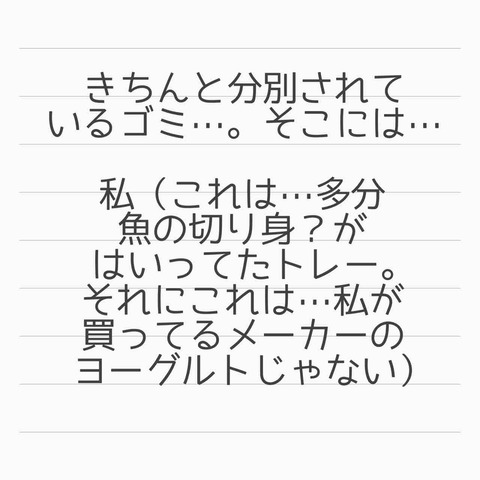 きちんと分別されて
いるゴミ…。そこには…
私（これは…多分
魚の切り身？が
はいってたトレー。
それにこれは…私が
買ってるメーカーの
ヨーグルトじゃない）